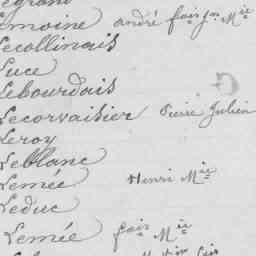 Lemoine andré fois jn Mie
Lecollinais
Luce
Lebourdais
Lecorvaisier Pierre Julien
Leroy
Leblanc
Lemée Henri Mie
Leduc
Lemée fois Mie